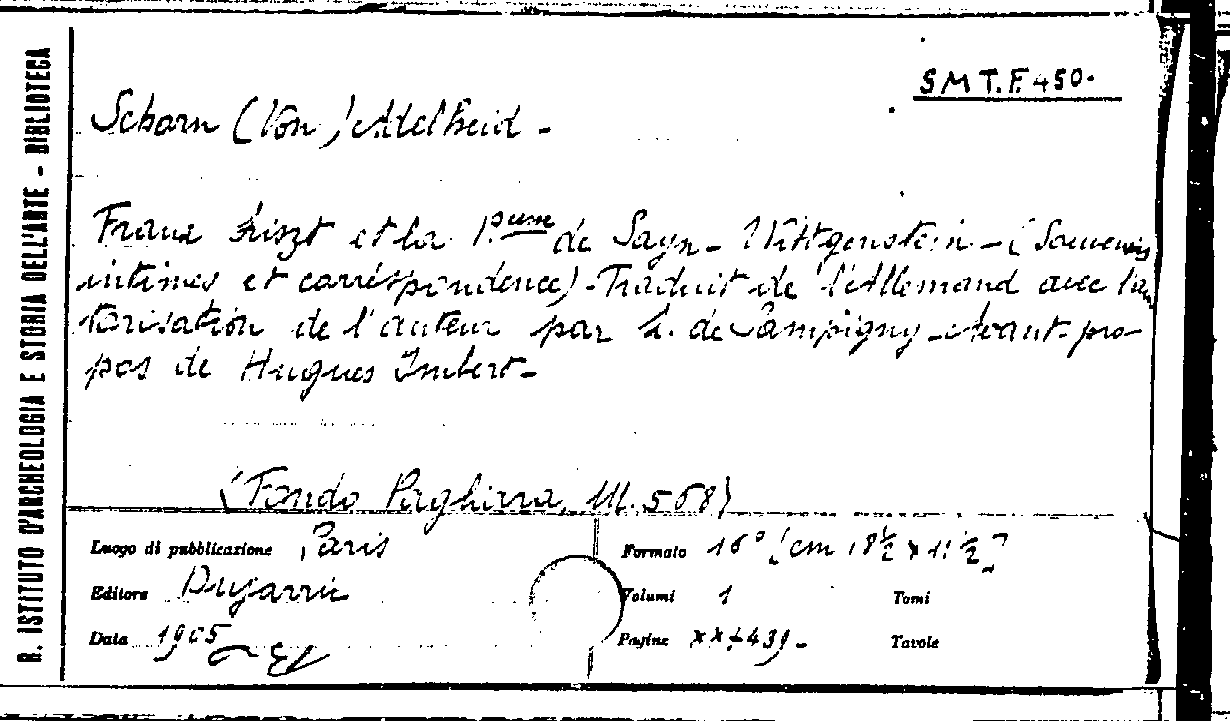 R. ISTITUTO D'ARCHEOLOGIA E STORIA DELL'ARTE - BIBLIOTECA
SMT.F.450.
Schorn (Von) Adelheid -
Franz Liszt et la P.cesse de Sayn-Wittgenstein - (Souvenirs
intimes et correspondence) - Traduit de l'Allemand avec l'au
torisation de l'auteur par L. de Sampigny - Avant-pro-
pos de Hugues Imbert -
(Fondo Pagliara, M. 568)
Luogo di pubblicazione Paris
Formato 16° [cm 18½ x 11½]
Editore Dujarric
Volumi 1
Tomi
Data 1905
Pagine XX+439 -
Tavole